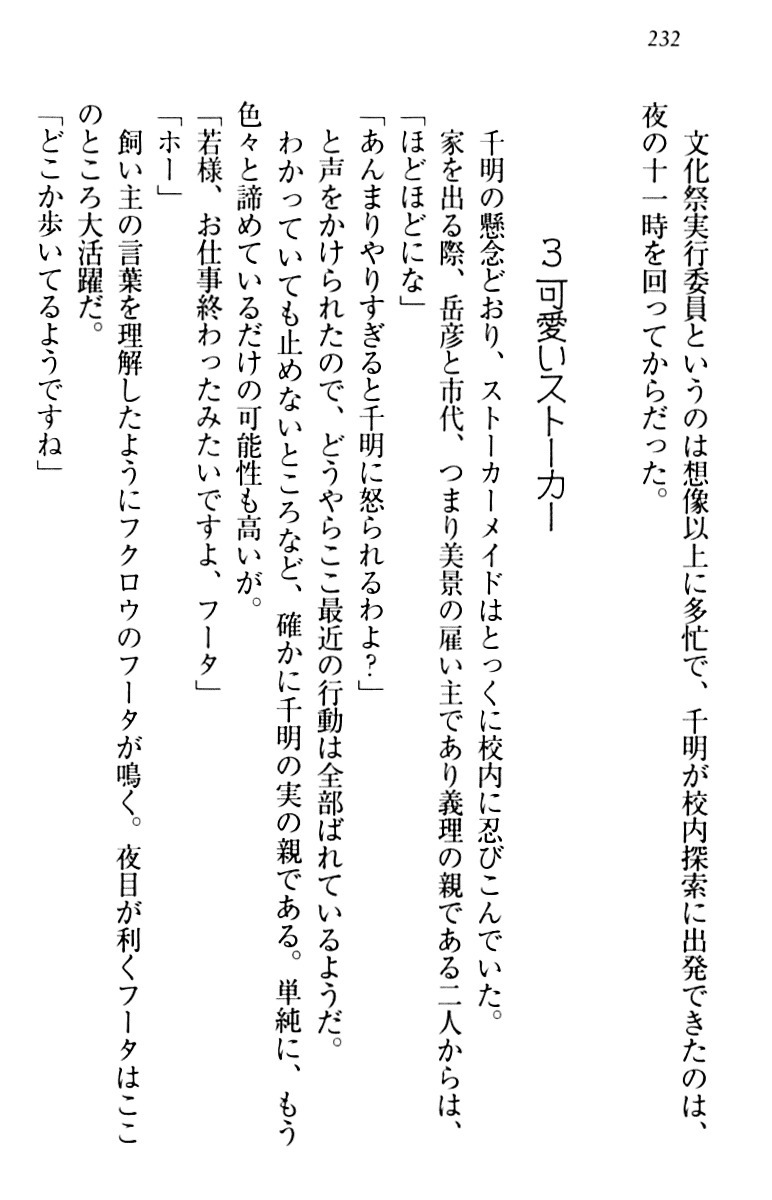 232
文化祭実行委員というのは想像以上に多忙で、千明が校内探索に出発できたのは、
夜の十一時を回ってからだった。
3 可愛いストーカー
千明の懸念どおり、ストーカーメイドはとっくに校内に忍びこんでいた。
家を出る際、岳彦と市代、つまり美景の雇い主であり義理の親である二人からは、
「ほどほどにな」
「あんまりやりすぎると千明に怒られるわよ？」
と声をかけられたので、どうやらここ最近の行動は全部ばれているようだ。
わかっていても止めないところなど、確かに千明の実の親である。単純に、もう
色々と諦めているだけの可能性も高いが。
「若様、お仕事終わったみたいですよ、フータ」
「ホー」
飼い主の言葉を理解したようにフクロウのフータが鳴く。夜目が利くフータはここ
のところ大活躍だ。
「どこか歩いてるようですね」